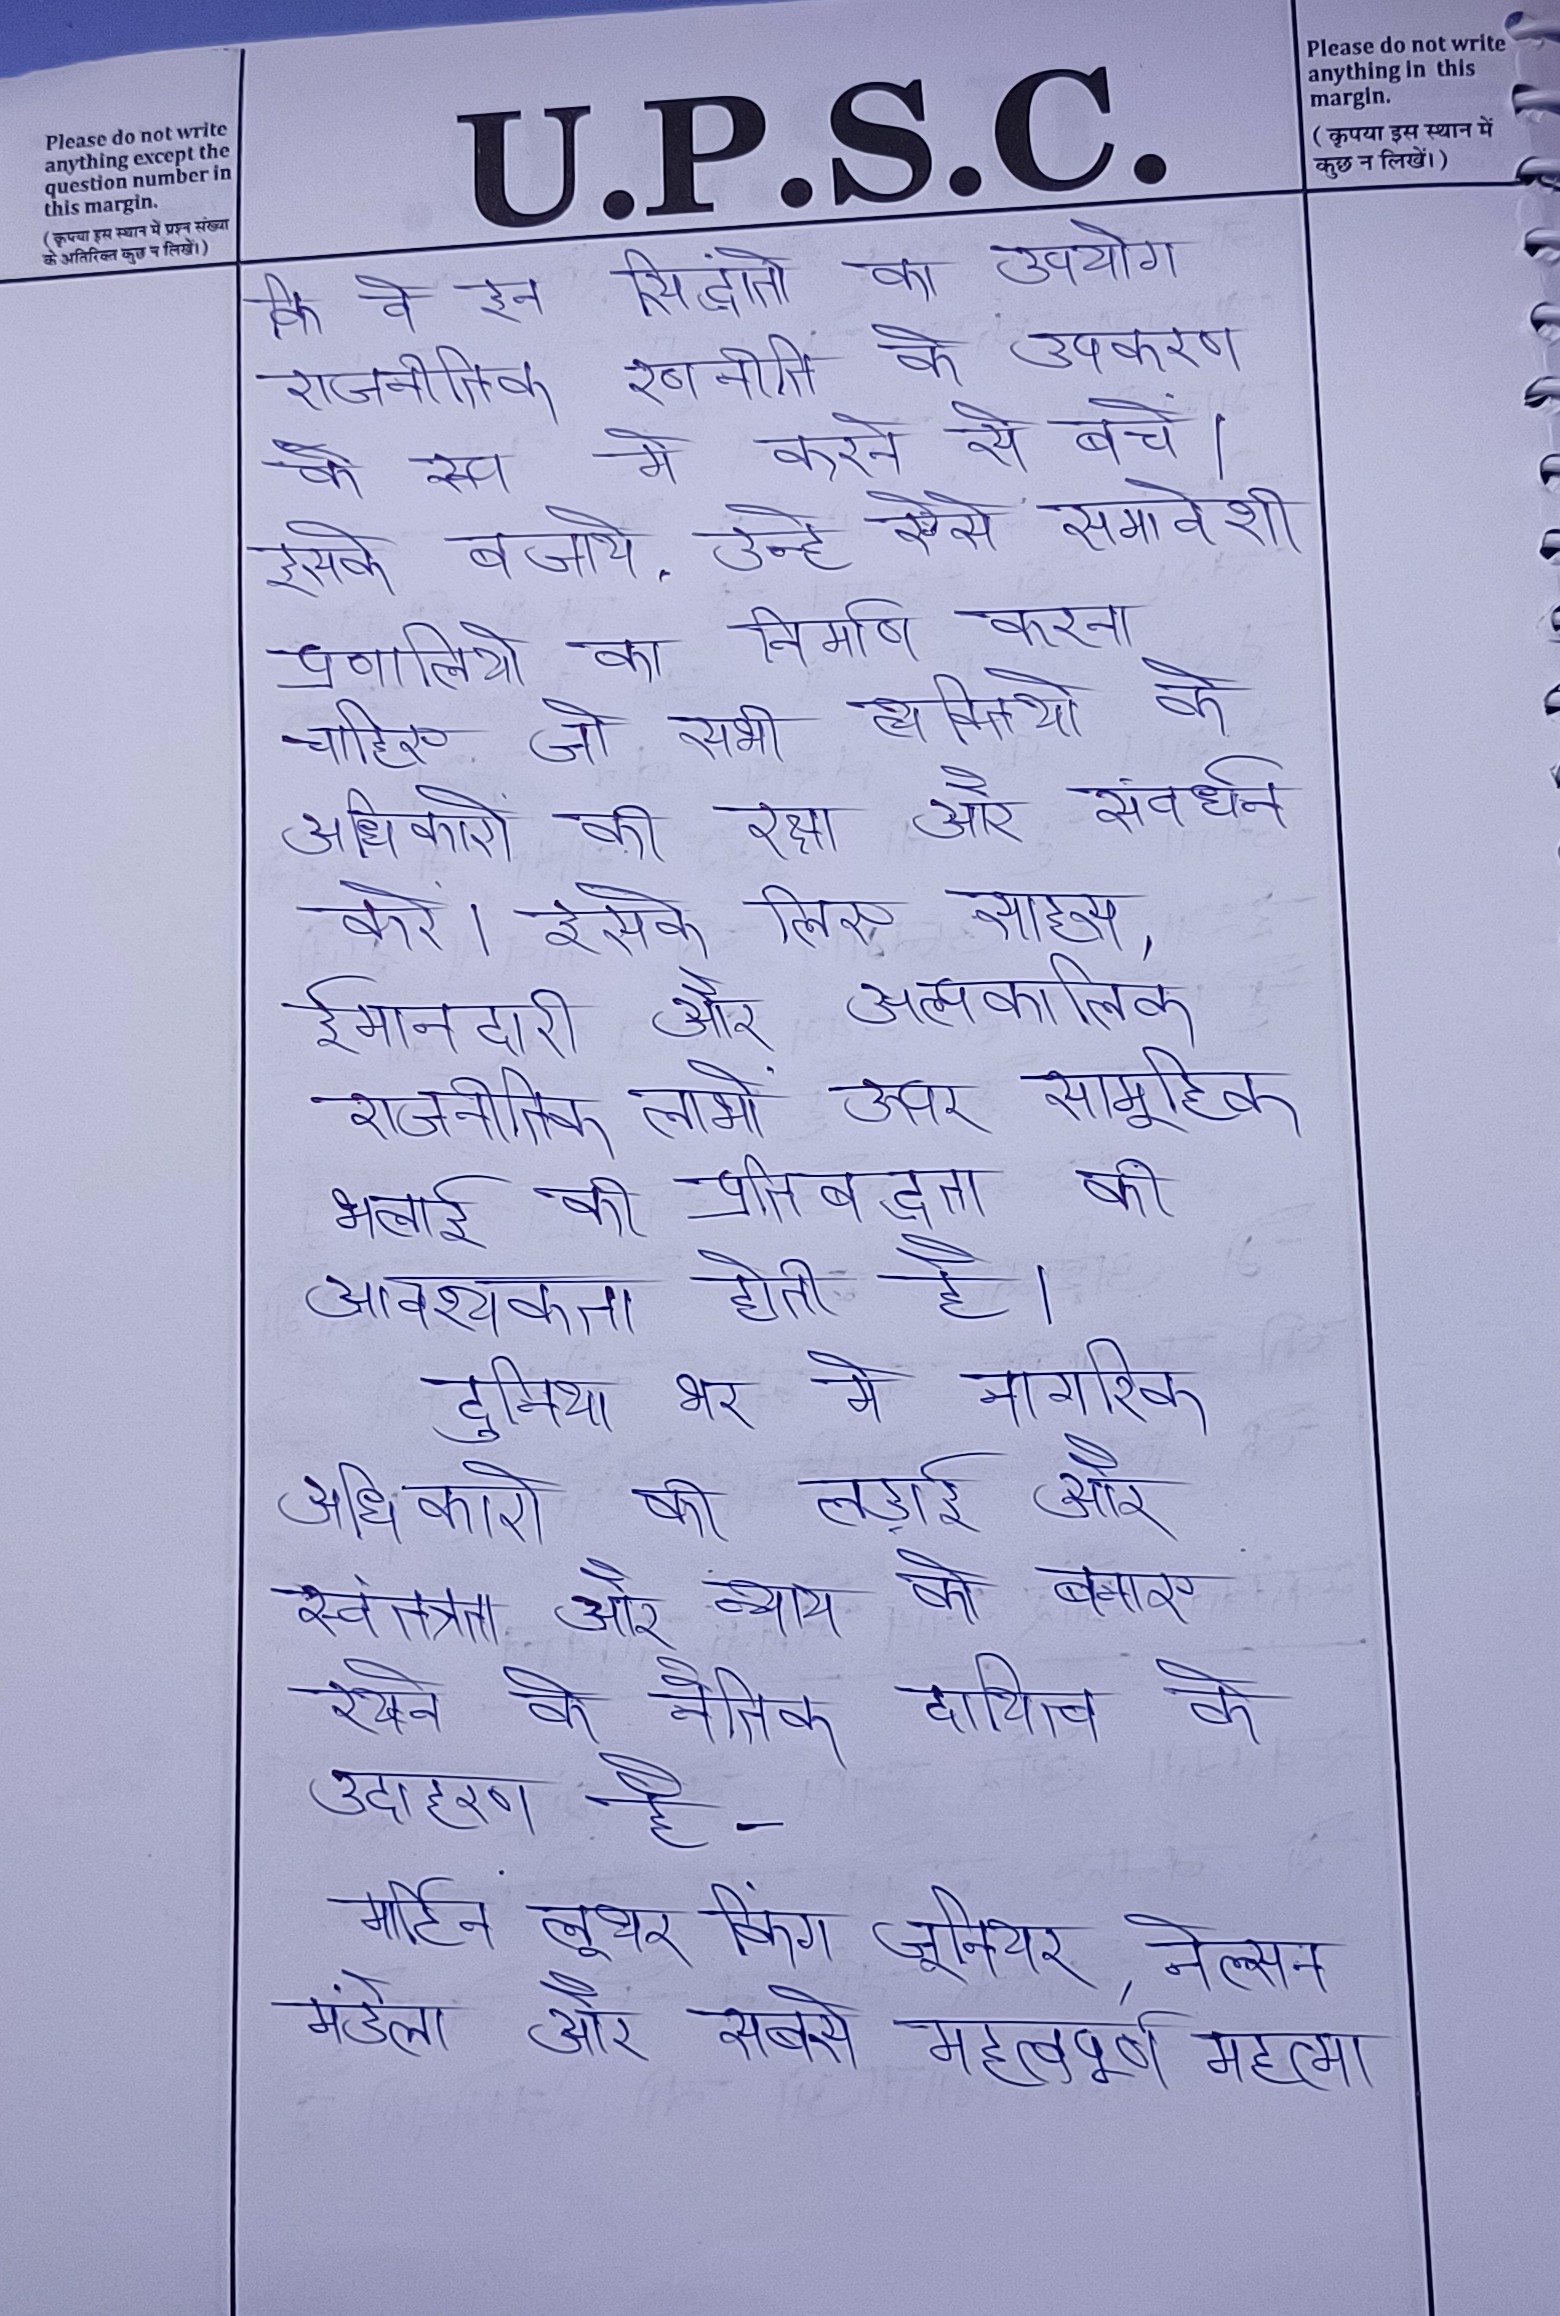 Please do not write
anything except the
question number in
this margin.
(कृपया इस स्थान में प्रश्न संख्या
के अतिरिक्त कुछ न लिखें।)
U.P.S.C.
Please do not write
anything in this
margin.
(कृपया इस स्थान में
कुछ न लिखें।)
कि वे इन सिद्धांतो का उपयोग
राजनीतिक रणनीति के उपकरण
के रूप मे करने से बचें।
इसके बजाये, उन्हे ऐसे समावेशी
प्रणालियो का निर्माण करना
चाहिए जो सभी व्यक्तियो के
अधिकारों की रक्षा और संवर्धन
करें। इसके लिए साहस,
ईमानदारी और अल्पकालिक
राजनीतिक लाभों ऊपर सामूहिक
भलाई की प्रतिबद्धता की
आवश्यकता होती है।
दुनिया भर मे नागरिक
अधिकारो की लड़ाई और
स्वंतत्रता और न्याय को बनाए
रखने के नैतिक दायित्व के
उदाहरण है -
मार्टिन लूथर किंग जूनियर, नेल्सन
मंडेला और सबसे महत्वपूर्ण महत्मा